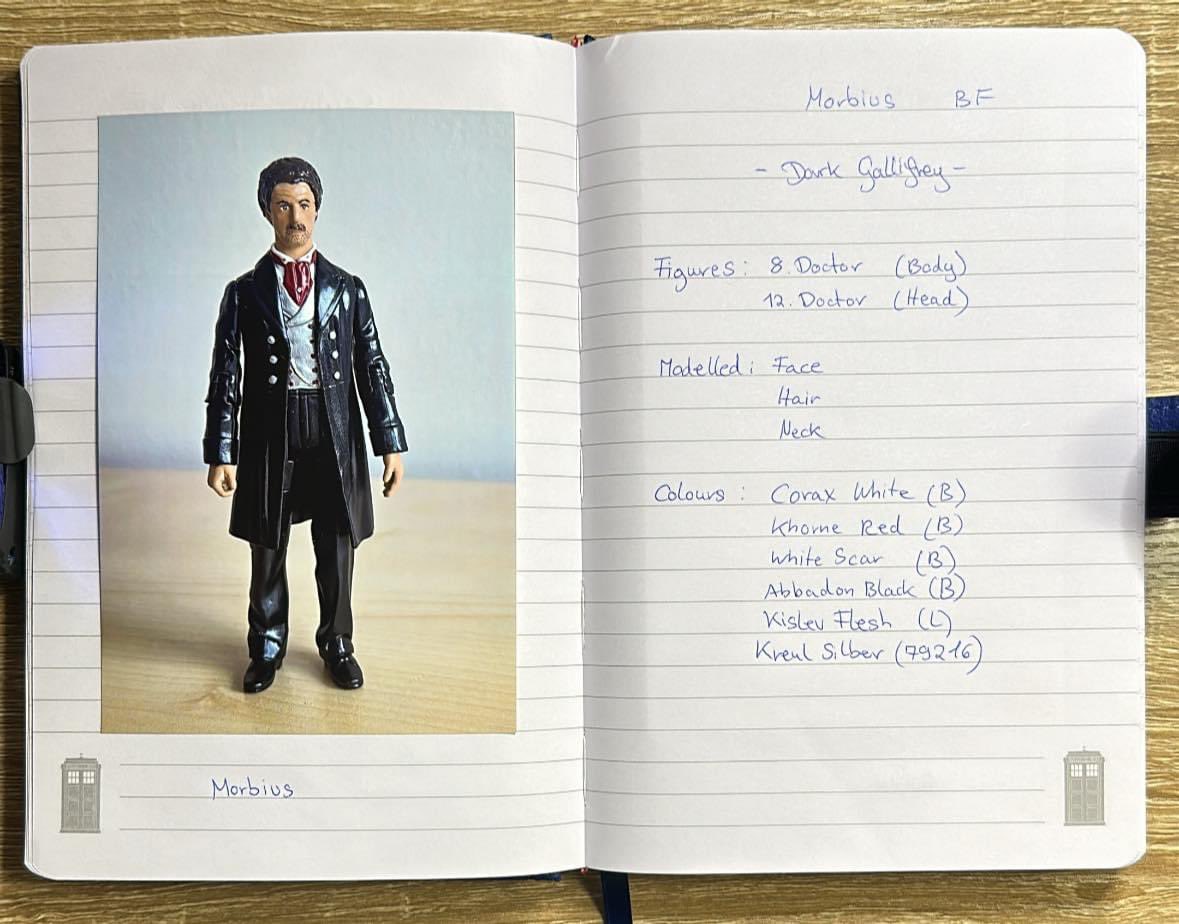 Morbius
Morbius BF
- Dark Gallifrey -
Figures: 8. Doctor (Body)
12. Doctor (Head)
Modelled: Face
Hair
Neck
Colours: Corax White (B)
Khorne Red (B)
White Scar (B)
Abbadon Black (B)
Kislev Flesh (L)
Kreul Silber (79216)